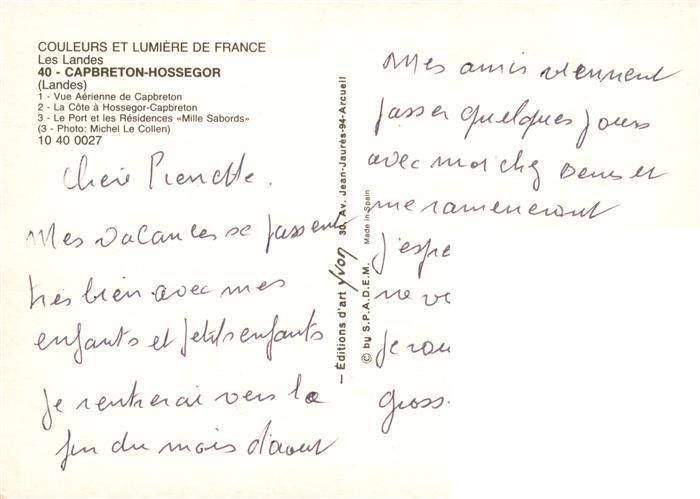 COULEURS ET LUMIÈRE DE FRANCE
Les Landes
40 - CAPBRETON-HOSSEGOR
(Landes)
1 - Vue Aérienne de Capbreton
2 - La Côte à Hossegor-Capbreton
3 - Le Port et les Résidences «Mille Sabords»
(3 - Photo: Michel Le Collen)
10 40 0027
Chère Pierrette.
Mes vacances se passent
très bien avec mes
enfants et petits enfants
je rentrerai vers la
fin du mois d'aout
— Éditions d'art Yvon 30, Av. Jean-Jaurès-94-Arcueil
© by S.P.A.D.E.M. Made in Spain
Mes amis viennent
passer quelques jours
avec moi chez Denis et
me rameneront
j'espè
ne
je
gross